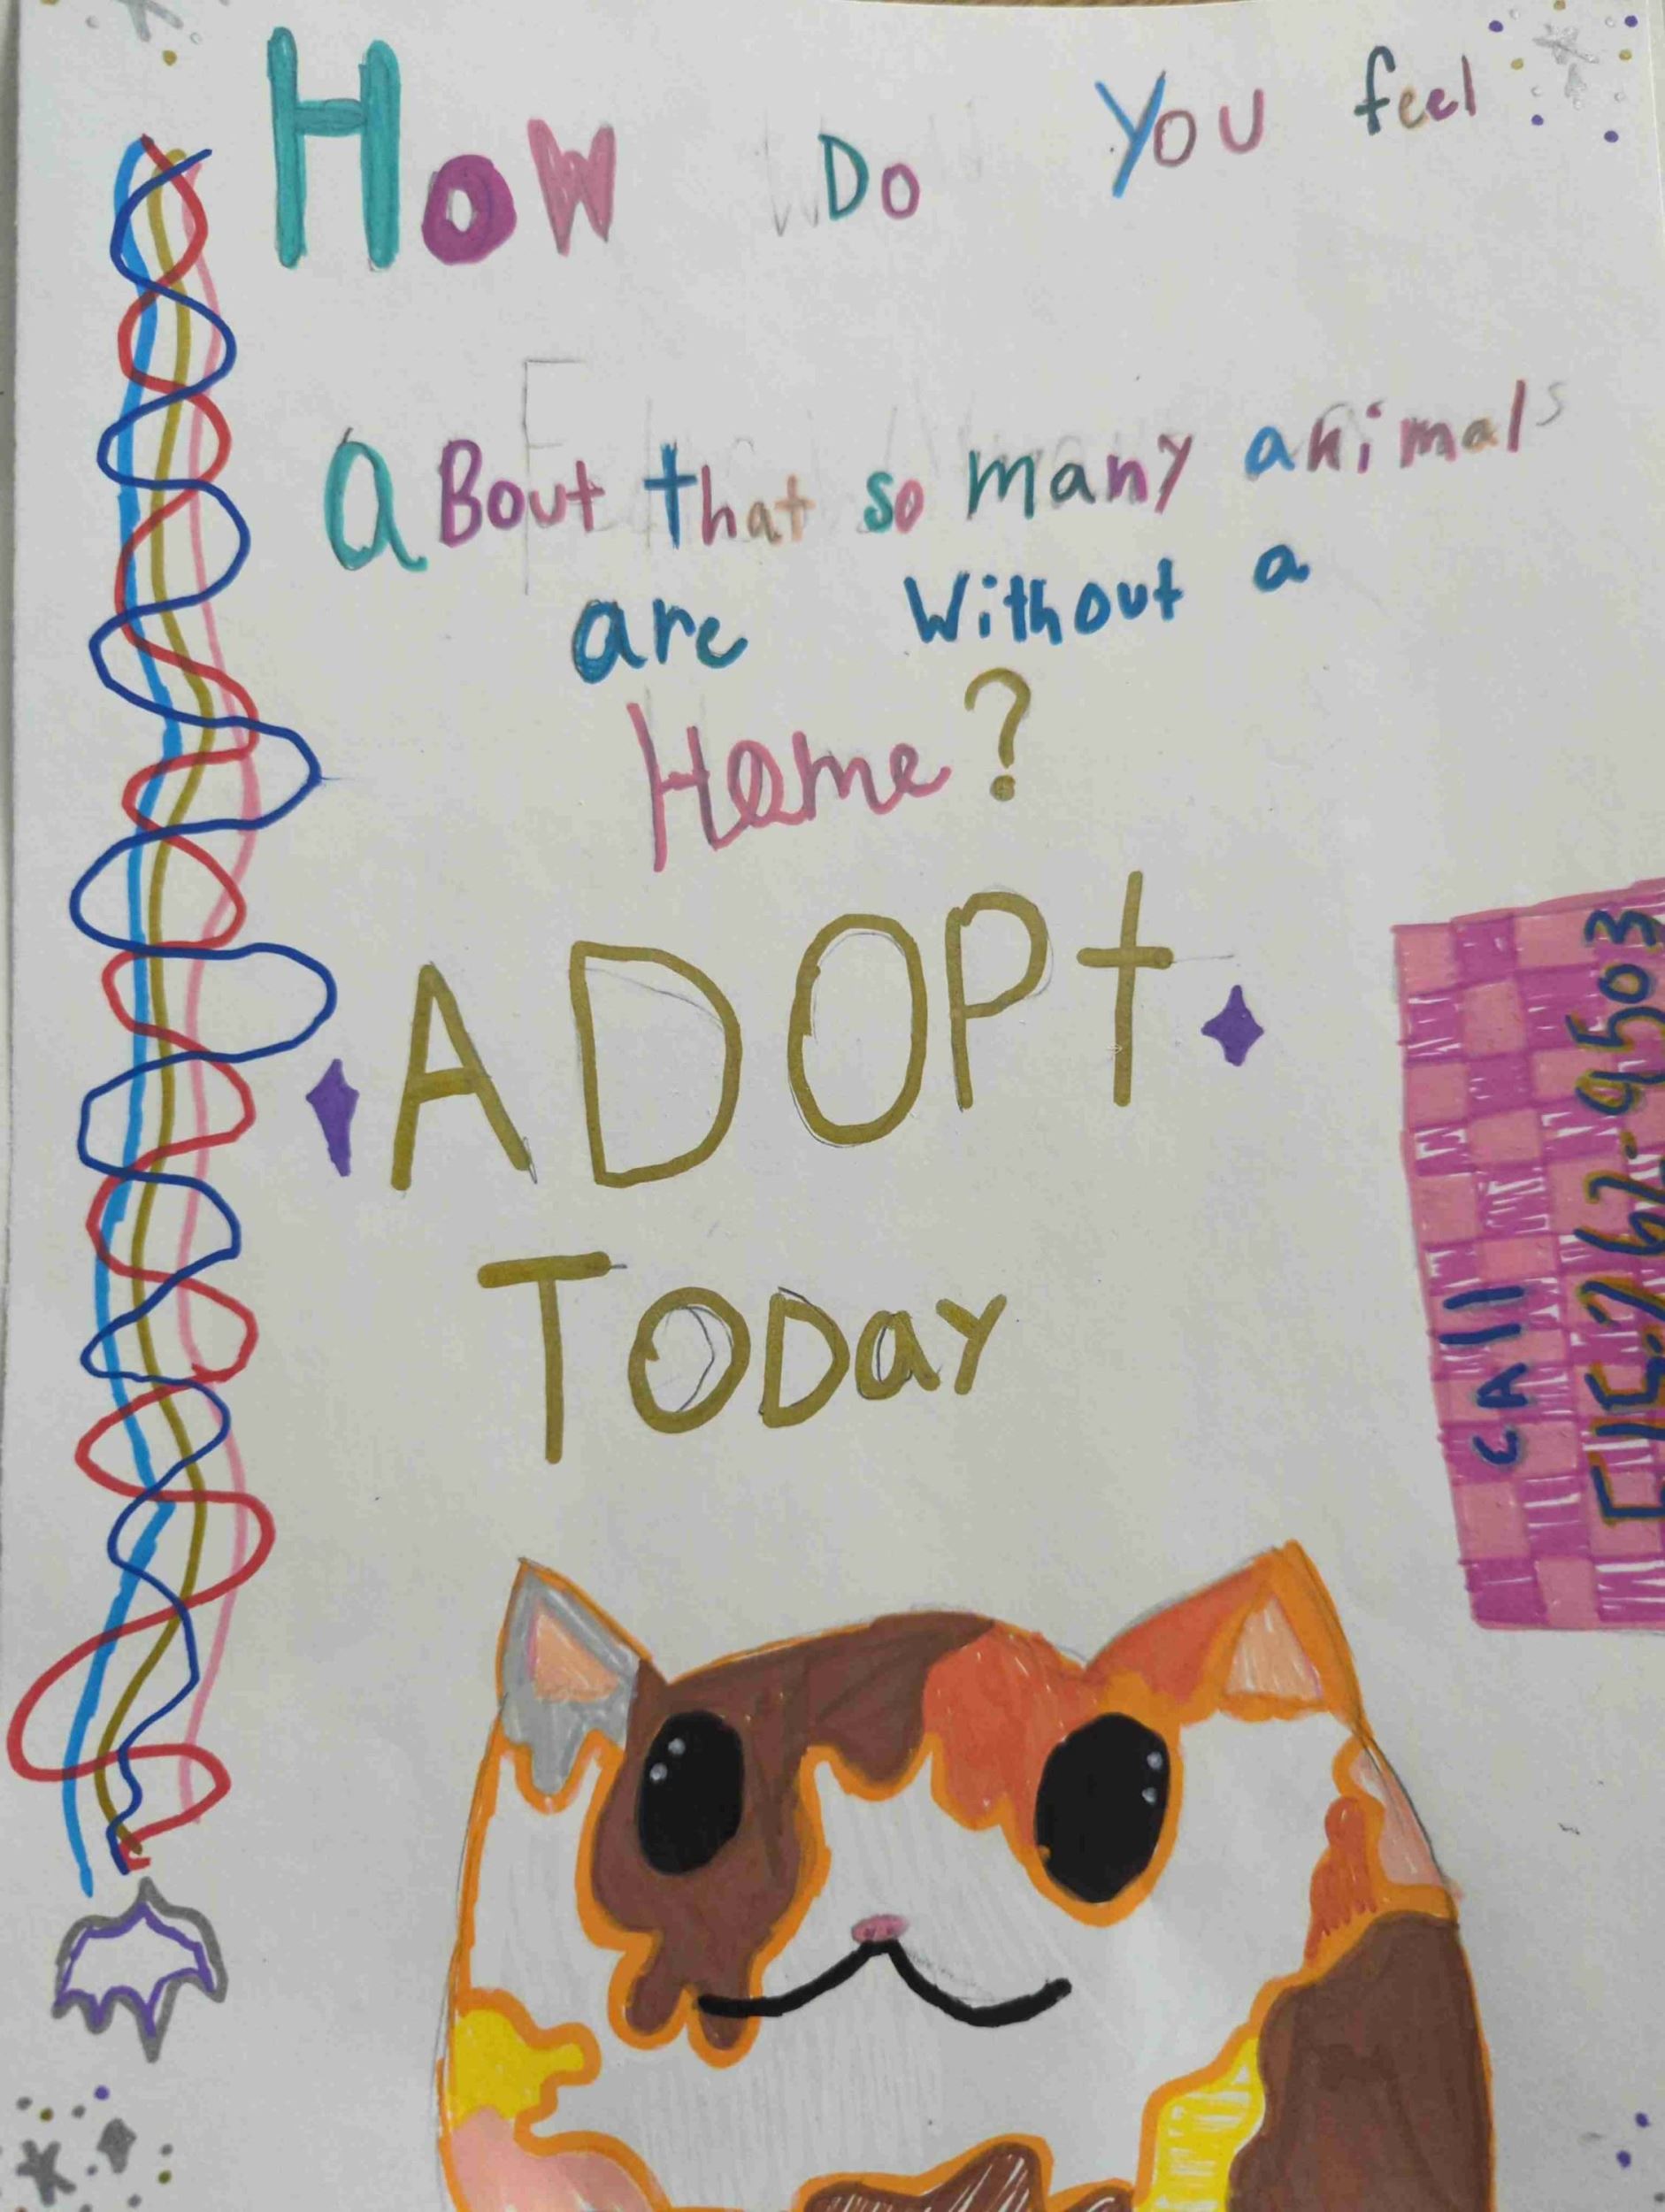 How Do You feel
aBout that so many animals
are Without a
Home?
ADOPt
TODay
cAll